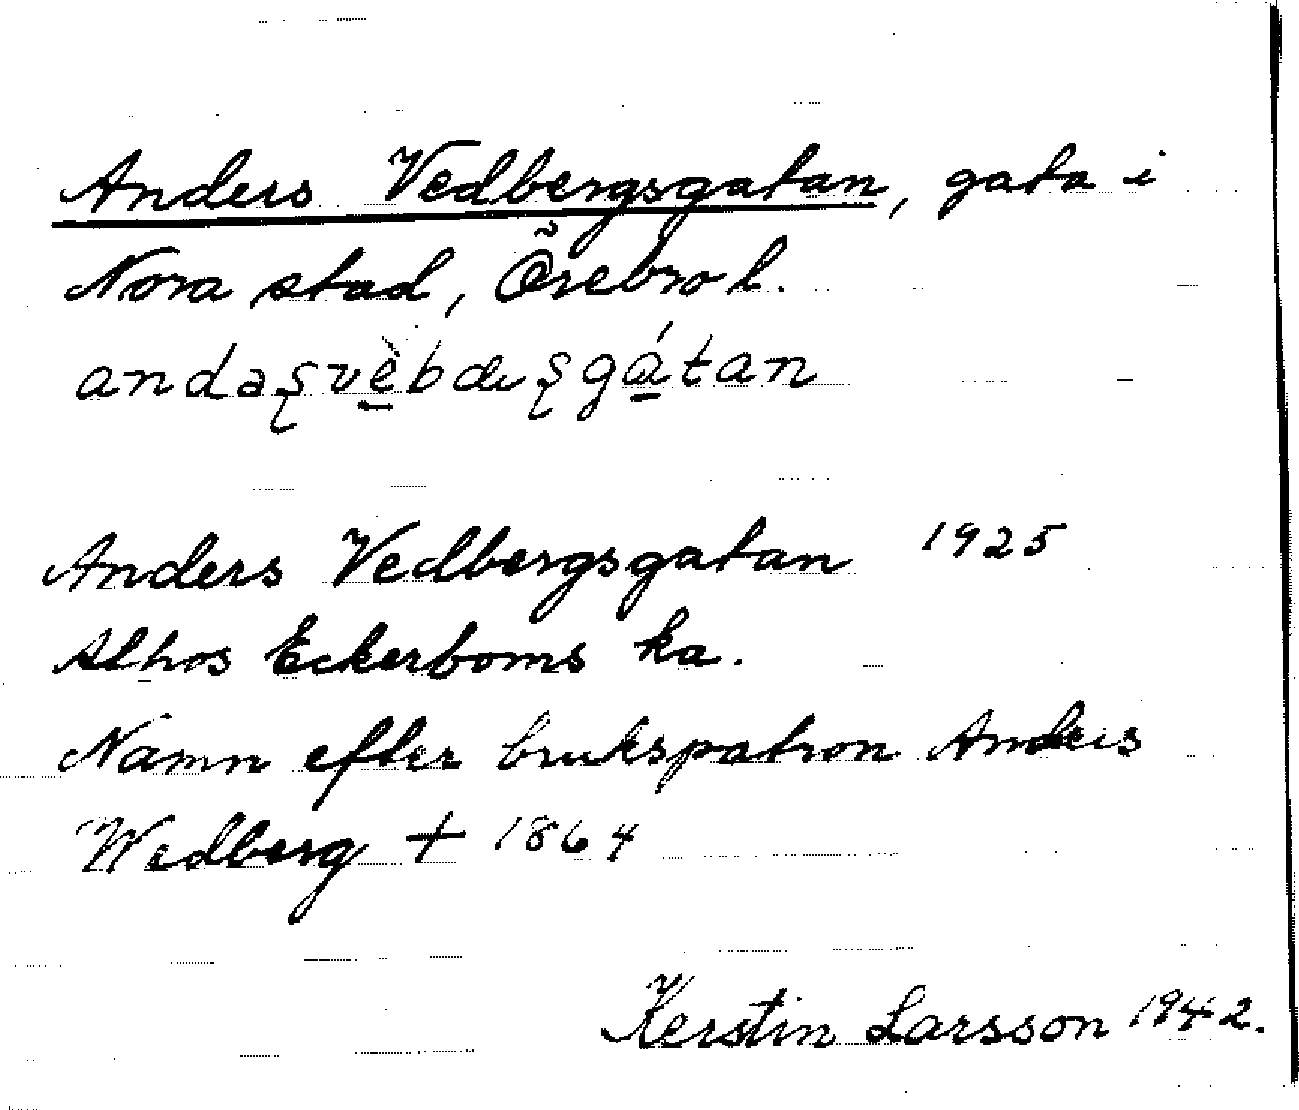 Anders Vedbergsgatan, gata i
Nora stad, Örebro l.
andaʂvèbæʂgátan
Anders Vedbergsgatan 1925
Alhos Eckerboms ka.
Namn efter brukspatron Anders
Wedberg † 1864
Kerstin Larsson 1942.